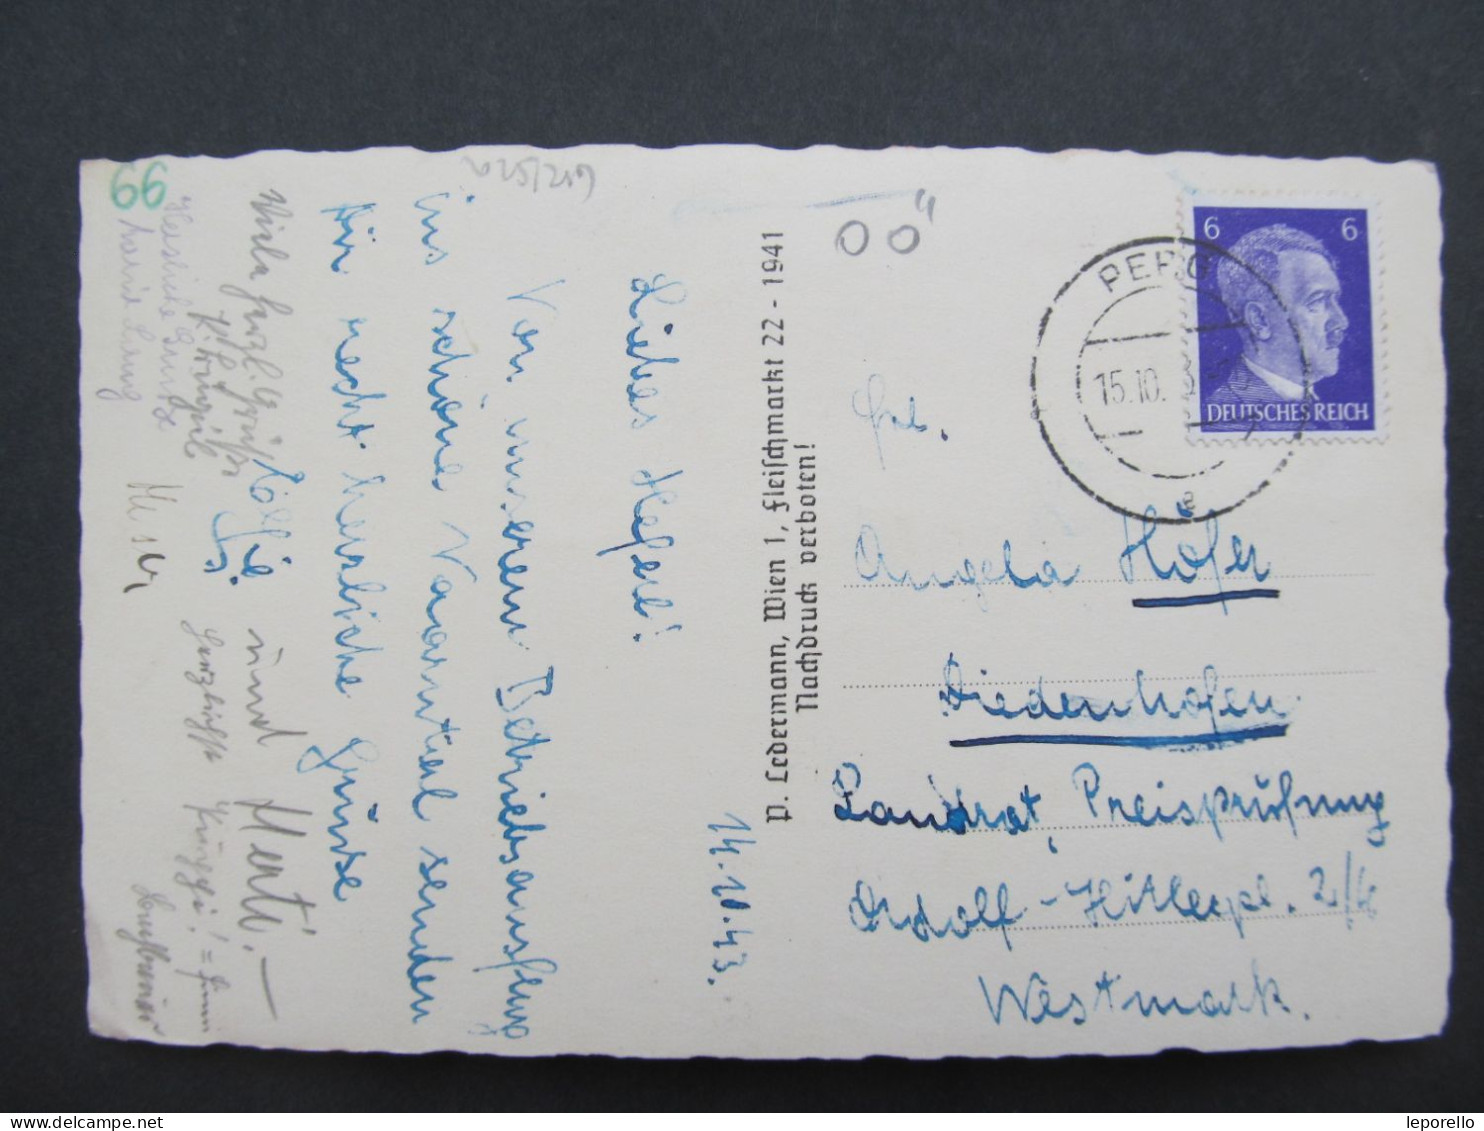 66
14.10.43.
Liebes Heferl!
Von unserem Betriebsausflug
ins schöne Naarntal senden
dir recht herzliche Grüsse
Elfie und Herti.
Viele herzl. Grüße
Herzliche Grüsse
P. Ledermann, Wien 1, Fleischmarkt 22 - 1941
Nachdruck verboten!
OÖ
6 6
DEUTSCHES REICH
PERG
15.10.
e
Frl.
Angela Höfer
Diedenhofen
Landrat, Preisprüfung
Adolf-Hitlerpl. 2/4
Westmark.
leporello